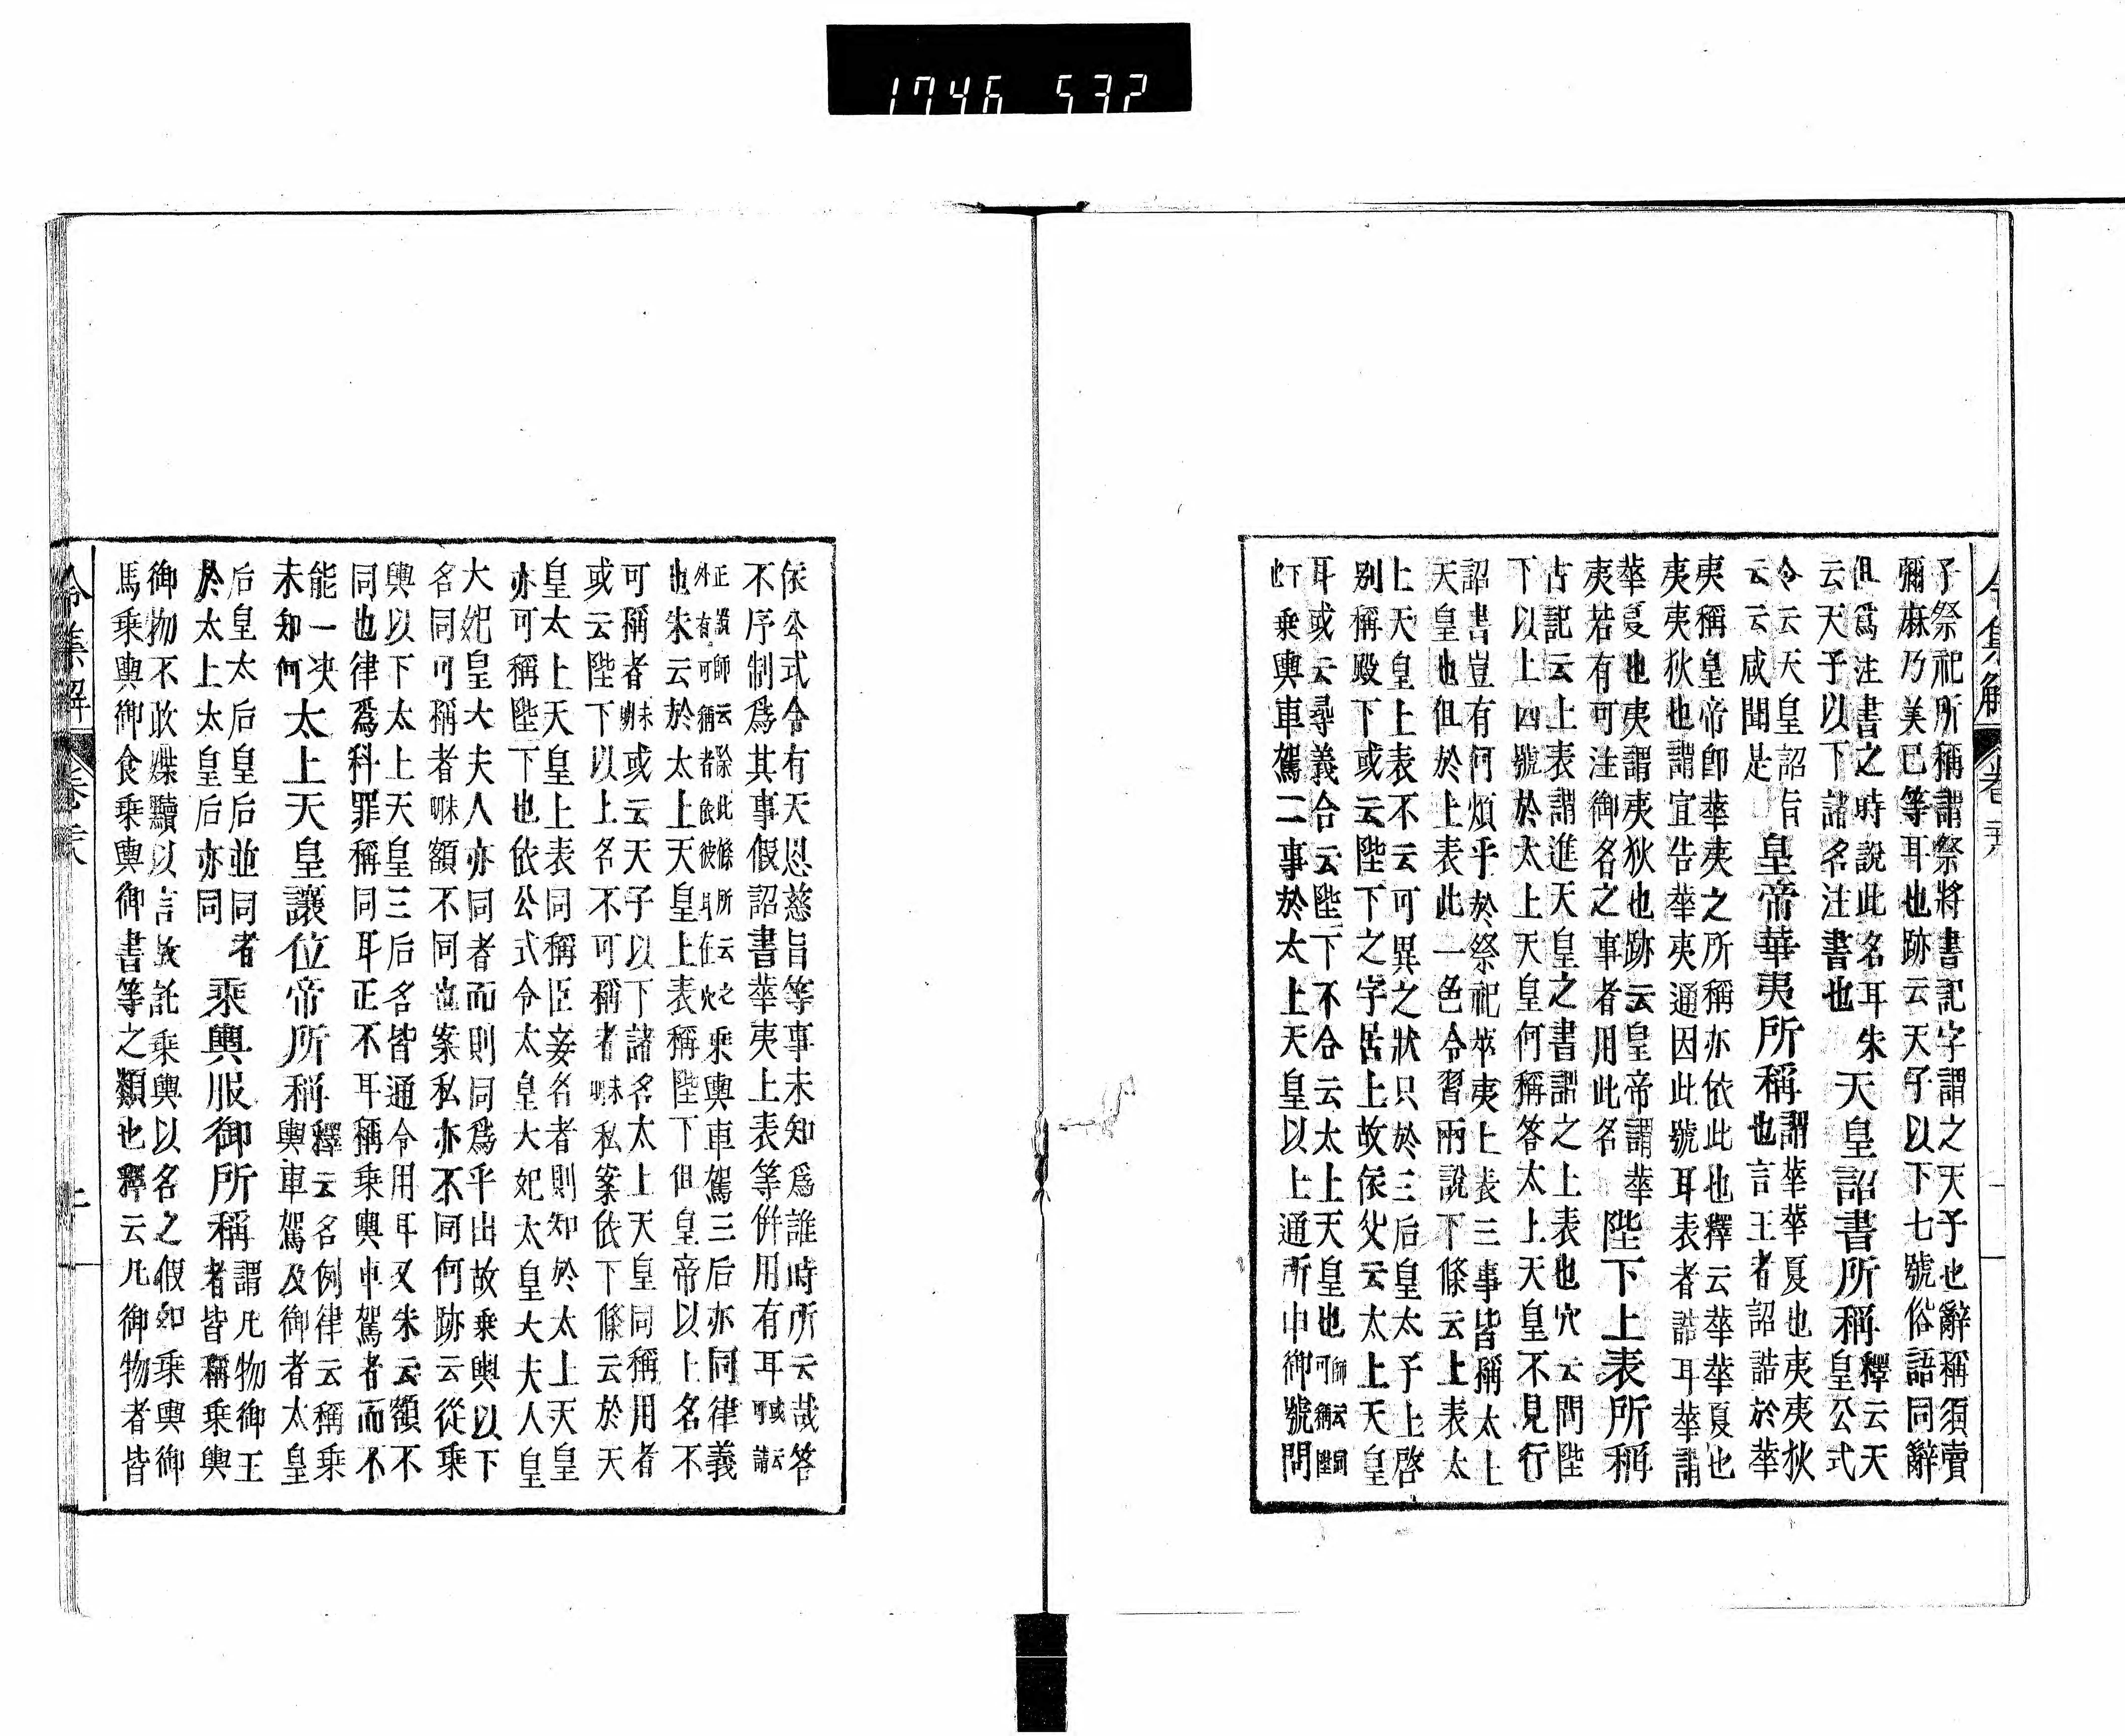 1746 532
令集解 卷二十八
子祭祀所稱謂祭將書記字謂之天子也辭稱須賣
彌麻乃美已等耳也跡云天子以下七號俗語同辭
但爲注書之時說此名耳朱
云天子以下諸名注書也
天皇詔書所稱
釋云天
皇公式
令云天皇詔旨
云云咸聞是
皇帝華夷所稱
謂華華夏也夷夷狄
也言王者詔誥於華
夷稱皇帝卽華夷之所稱亦依此也釋云華華夏也
夷夷狄也謂宜告華夷通因此號耳表者誥耳華謂
華夏也夷謂夷狄也跡云皇帝謂華
夷若有可注御名之事者用此名
陛下上表所稱
古記云上表謂進天皇之書謂之上表也穴云問陛
下以上四號於太上天皇何稱答太上天皇不見行
詔書豈有何煩乎於祭祀華夷上表三事皆稱太上
天皇也但於上表此一色令習兩說下條云上表太
上天皇上表不云可異之狀只於三后皇太子上啓
別稱殿下或云陛下之字居上故依父云太上天皇
耳或云尋義合云陛下不合云太上天皇也
師云同
可稱陛
下
也
乘輿車駕二事於太上天皇以上通所申御號問
依公式令有天恩慈旨等事未知爲誰時所云哉答
不序制爲其事假詔書華夷上表等併用有耳
或云
可請
正讚師云除此條所云之
外有可稱者依彼耳在穴
乘輿車駕三后亦同律義
也朱云於太上天皇上表稱陛下但皇帝以上名不
可稱者
未明
或云天子以下諸名太上天皇同稱用者
或云陛下以上名不可稱者
未明
私案依下條云於天
皇太上天皇上表同稱臣妾名者則知於太上天皇
亦可稱陛下也依公式令太皇大妃太皇大夫人皇
大妃皇大夫人亦同者而則同爲乎出故乘輿以下
名同可稱者
未明
額不同也案私亦不同何跡云從乘
輿以下太上天皇三后名皆通令用耳又朱云額不
同也律爲科罪稱同耳正不耳稱乘輿車駕者而不
能一决
未知何
太上天皇讓位帝所稱
釋云名例律云稱乘
輿車駕及御者太皇
后皇太后皇后並同者
於太上太皇后亦同
乘輿服御所稱
謂凡物御王
者皆稱乘輿
御物不敢媟黷以言故託乘輿以名之假如乘輿御
馬乘輿御食乘輿御書等之類也釋云凡御物者皆
令集解 卷二十八 二